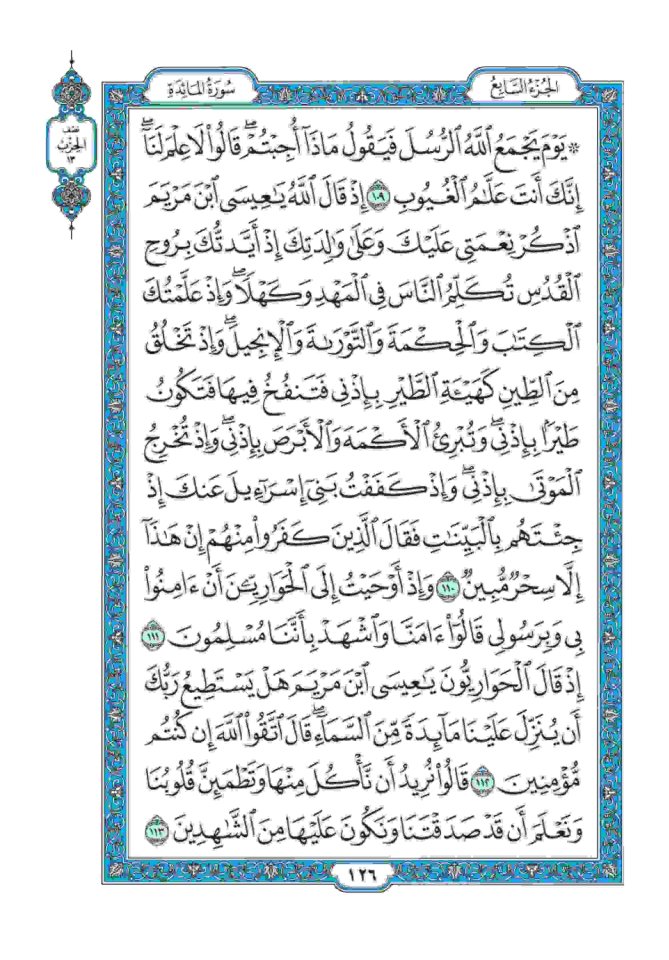 سُورَةُ المَائِدَةِ
الجُزْءُ السَّابِعُ
نصف
الحِزْب
١٣
۞ يَوْمَ يَجْمَعُ ٱللَّهُ ٱلرُّسُلَ فَيَقُولُ مَاذَآ أُجِبْتُمْۖ قَالُوا۟ لَا عِلْمَ لَنَآۖ
إِنَّكَ أَنتَ عَلَّٰمُ ٱلْغُيُوبِ ١٠٩ إِذْ قَالَ ٱللَّهُ يَٰعِيسَى ٱبْنَ مَرْيَمَ
ٱذْكُرْ نِعْمَتِى عَلَيْكَ وَعَلَىٰ وَٰلِدَتِكَ إِذْ أَيَّدتُّكَ بِرُوحِ
ٱلْقُدُسِ تُكَلِّمُ ٱلنَّاسَ فِى ٱلْمَهْدِ وَكَهْلًاۖ وَإِذْ عَلَّمْتُكَ
ٱلْكِتَٰبَ وَٱلْحِكْمَةَ وَٱلتَّوْرَىٰةَ وَٱلْإِنجِيلَۖ وَإِذْ تَخْلُقُ
مِنَ ٱلطِّينِ كَهَيْـَٔةِ ٱلطَّيْرِ بِإِذْنِى فَتَنفُخُ فِيهَا فَتَكُونُ
طَيْرًۢا بِإِذْنِىۖ وَتُبْرِئُ ٱلْأَكْمَهَ وَٱلْأَبْرَصَ بِإِذْنِىۖ وَإِذْ تُخْرِجُ
ٱلْمَوْتَىٰ بِإِذْنِىۖ وَإِذْ كَفَفْتُ بَنِىٓ إِسْرَٰٓءِيلَ عَنكَ إِذْ
جِئْتَهُم بِٱلْبَيِّنَٰتِ فَقَالَ ٱلَّذِينَ كَفَرُوا۟ مِنْهُمْ إِنْ هَٰذَآ
إِلَّا سِحْرٌ مُّبِينٌ ١١٠ وَإِذْ أَوْحَيْتُ إِلَى ٱلْحَوَارِيِّـۧنَ أَنْ ءَامِنُوا۟
بِى وَبِرَسُولِى قَالُوٓا۟ ءَامَنَّا وَٱشْهَدْ بِأَنَّنَا مُسْلِمُونَ ١١١
إِذْ قَالَ ٱلْحَوَارِيُّونَ يَٰعِيسَى ٱبْنَ مَرْيَمَ هَلْ يَسْتَطِيعُ رَبُّكَ
أَن يُنَزِّلَ عَلَيْنَا مَآئِدَةً مِّنَ ٱلسَّمَآءِۖ قَالَ ٱتَّقُوا۟ ٱللَّهَ إِن كُنتُم
مُّؤْمِنِينَ ١١٢ قَالُوا۟ نُرِيدُ أَن نَّأْكُلَ مِنْهَا وَتَطْمَئِنَّ قُلُوبُنَا
وَنَعْلَمَ أَن قَدْ صَدَقْتَنَا وَنَكُونَ عَلَيْهَا مِنَ ٱلشَّٰهِدِينَ ١١٣
١٢٦